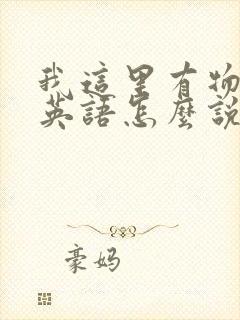 我這里有物
英語怎麼說
豪妈